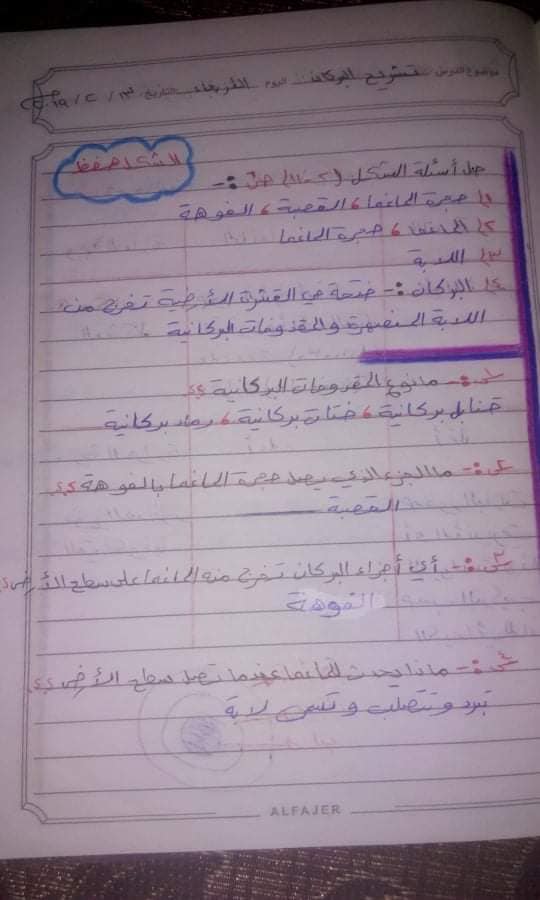 موضوع الدرس: تشريح البركان اليوم: الأربعاء التاريخ: ١٣ / ٢ / ٢٠١٩
للشكل حفظ
حل أسئلة الشكل (٢-١١) ص :-
١/ حجرة الماغما ، القصبة ، الفوهة
٢/ الماغما ، حجرة الماغما
٣/ اللابة
٤/ البركان :- فتحة في القشرة الأرضية تخرج منه
اللابة المنصهرة والمقذوفات البركانية
س١:- ما نوع المقذوفات البركانية ؟؟
قنابل بركانية ، فتات بركانية ، رماد بركانية
س٢:- ما الجزء الذي يصل حجرة الماغما بالفوهة ؟؟
القصبة
س٣:- أي أجزاء البركان تخرج منه الماغما على سطح الأرض ؟
الفوهة
س٤:- ماذا يحدث للماغما عندما تصل سطح الأرض ؟؟
تبرد وتتصلب وتسمى لابة
ALFAJER